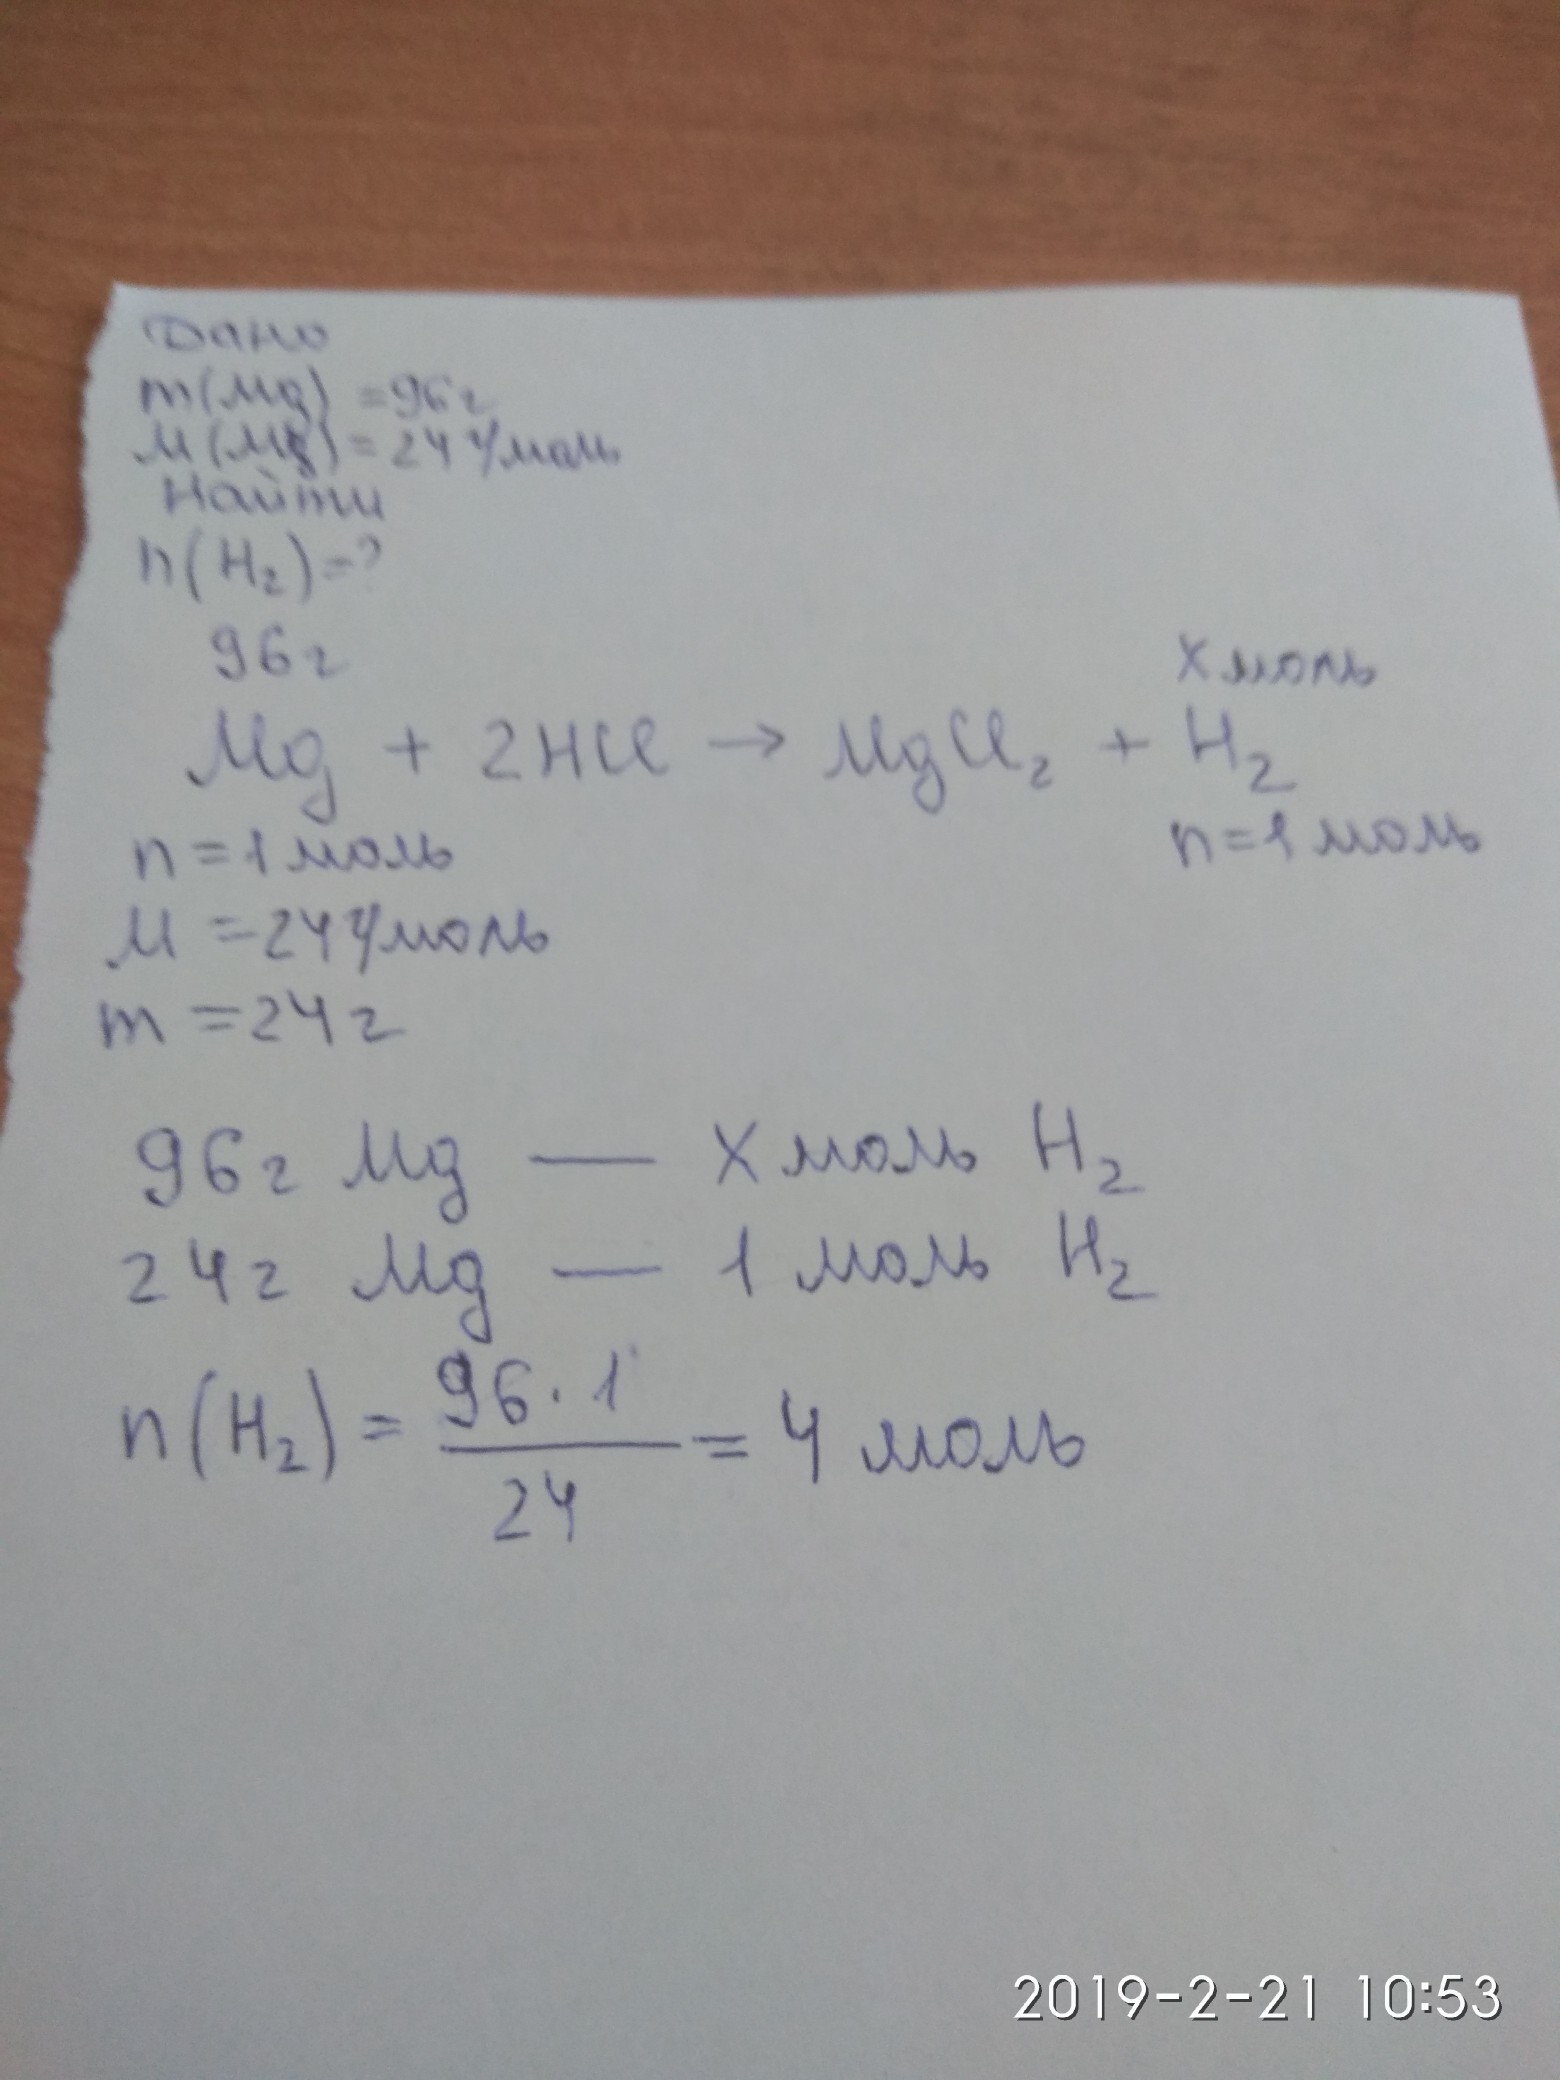 Дано
m(Mg) =96г
M(Mg)=24 г/моль
Найти
n(H₂)=?
96г
X моль
Mg + 2HCl → MgCl₂ + H₂
n=1моль
n=1 моль
M =24 г/моль
m =24 г
96г Mg — X моль H₂
24г Mg — 1 моль H₂
n(H₂) = 96·1/24 = 4 моль
2019-2-21 10:53